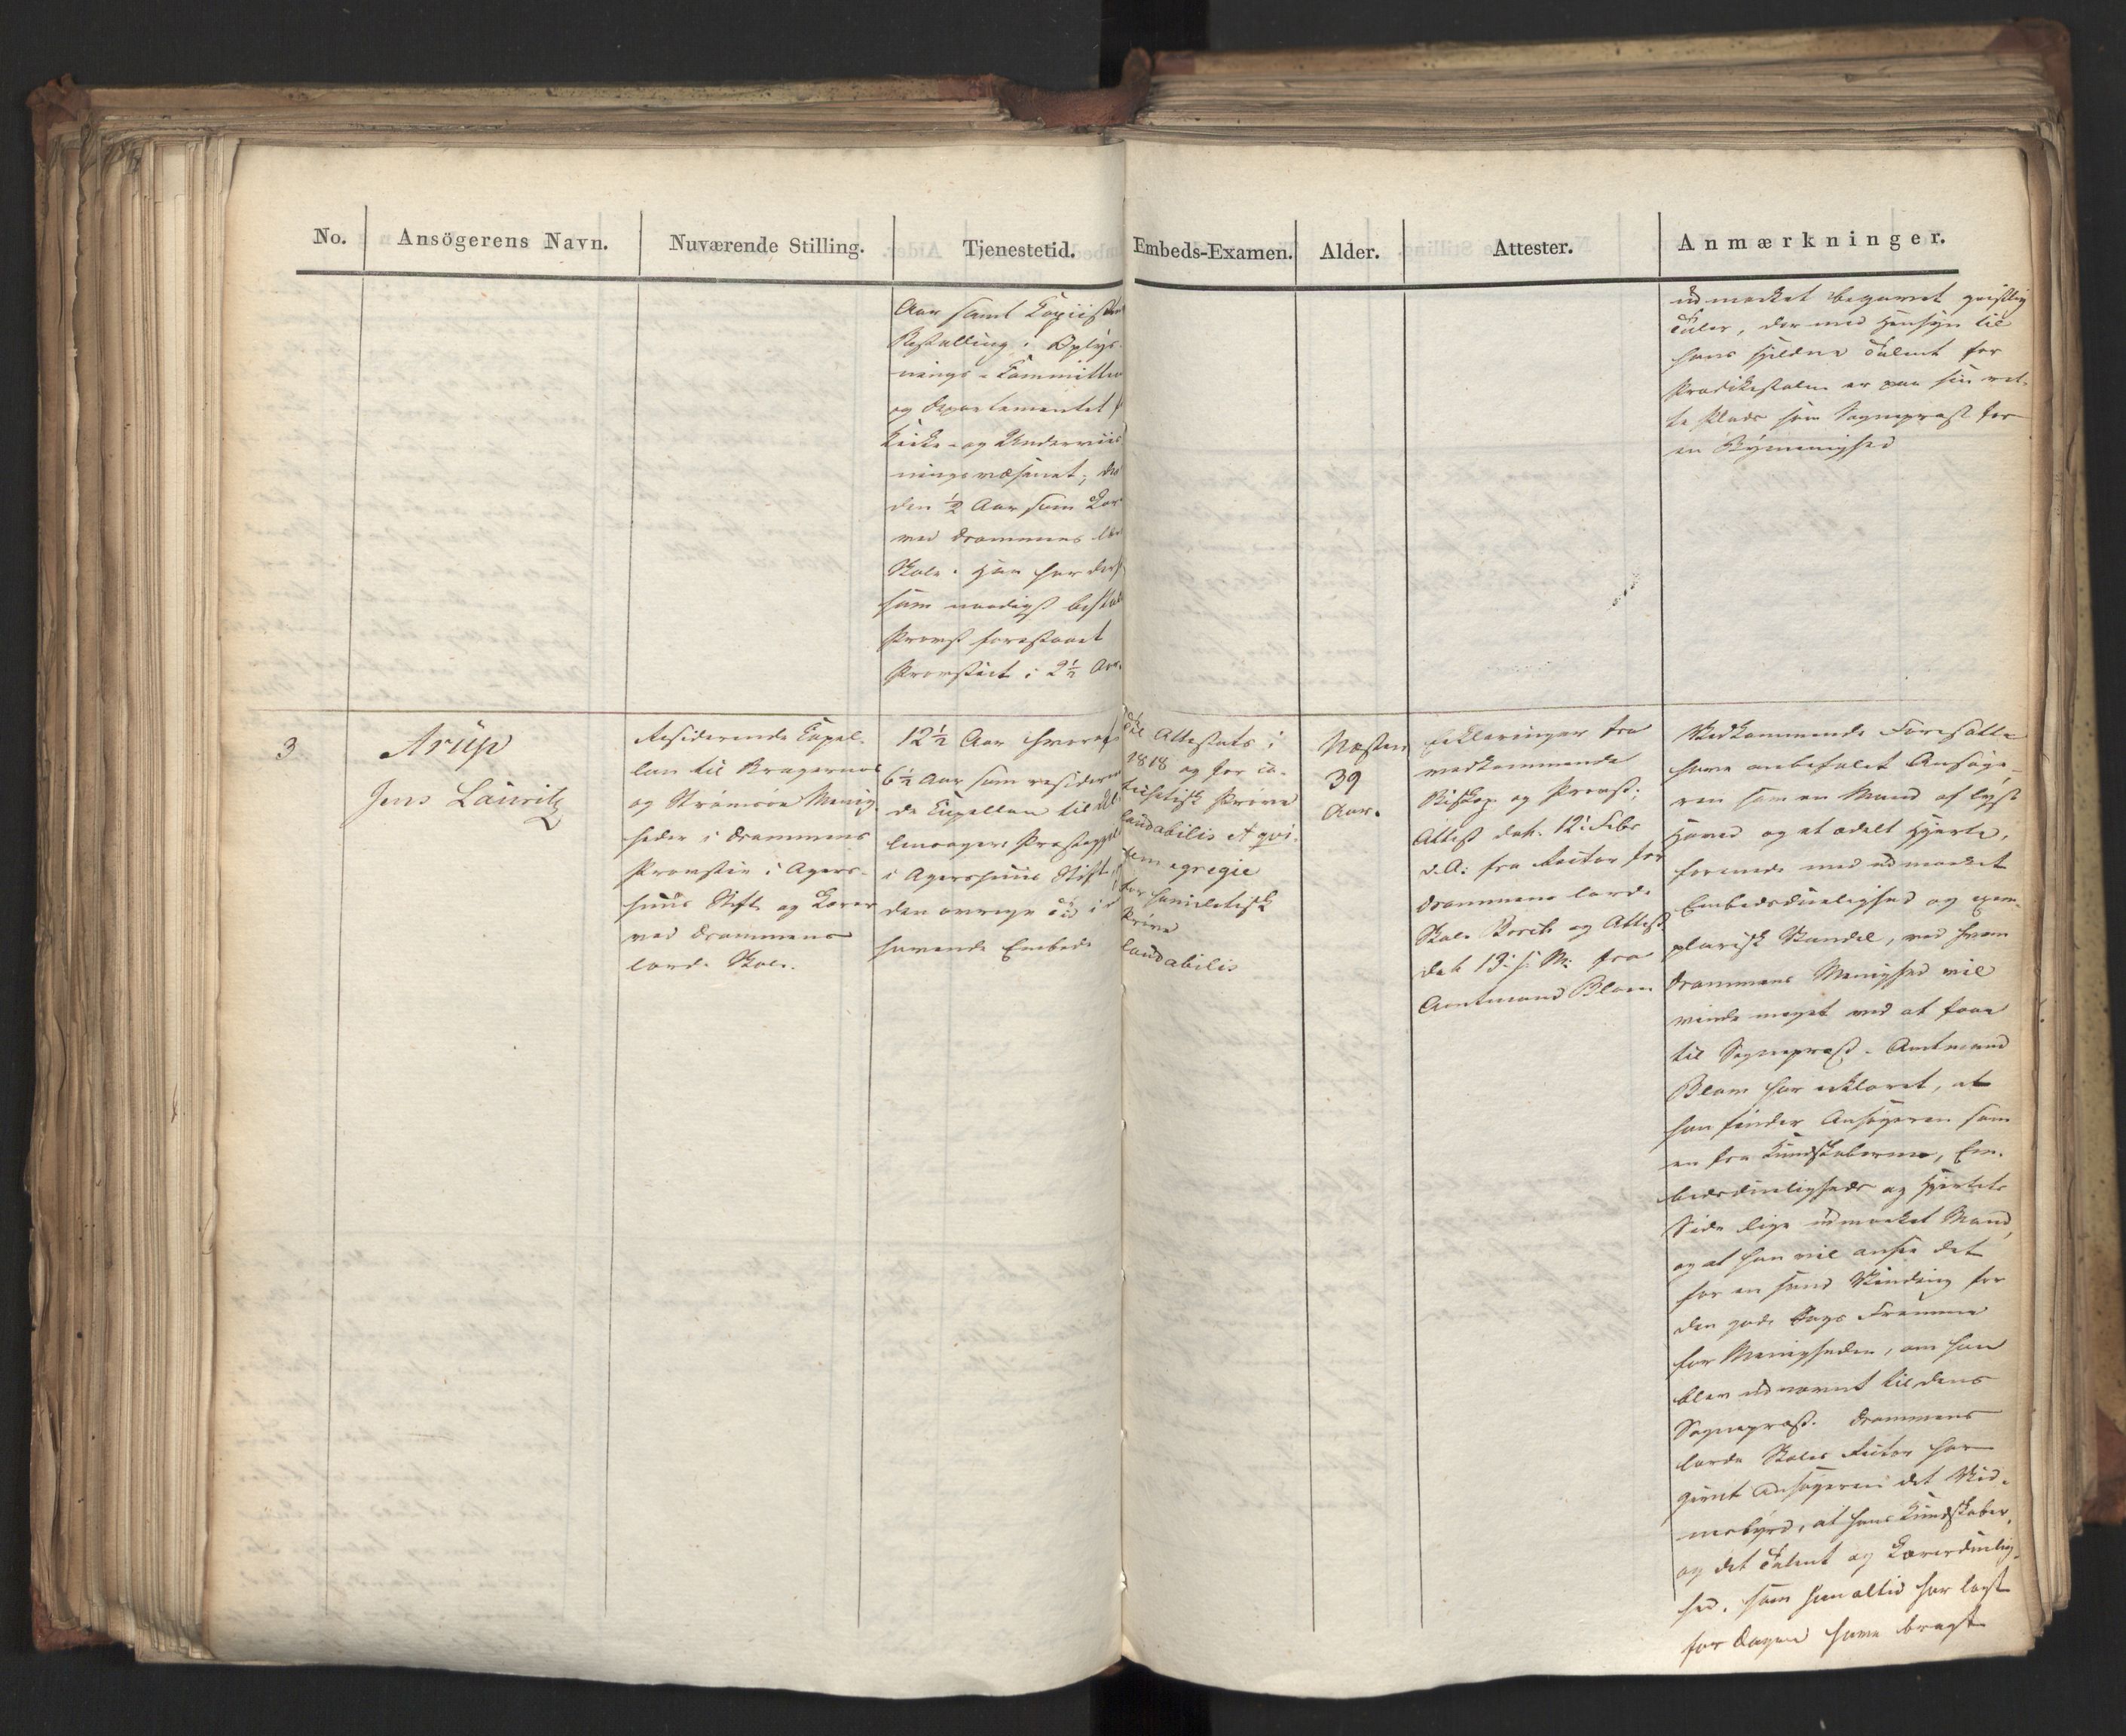 No.
Ansögerens Navn.
Nuværende Stilling.
Tjenestetid.
Embeds-Examen.
Alder.
Attester.
Anmærkninger.
Aar samt Copiist
Bestalling i Oplys-
nings-Committee
og Departementet f
Kirke- og Underviis
ningsvæsenet; des
den ½ Aar som Lær
ved Drammens lær
Skole. Han har der
som naadigst beskik
Provst forestaaet
Provstiet i 2½ Aar.
udmærket begavet geistlig
Taler, der med Hensyn til
hans sjeldne Talent for
Prædikestolen er paa sin ret-
te Plads som Sognepræst for
en Bymenighed
3
Arup
Jens Lauritz
Residerende Capel-
lan til Bragernæs
og Strömsöe Menig-
heder i Drammens
Provstie i Agers-
huus Stift og Lærer
ved Drammens
lærde Skole.
12½ Aar hvoraf
6½ Aar som residere
de Capellan til
Præstegjeld
i Agershuus Stift,
den övrige Tid i
havende Embede
Til Attestats i
1818 og for ca-
techetisk Pröve
laudabilis et qvi-
dem egregie
for homiletisk
Pröve
laudabilis
Næsten
39
Aar.
Erklæringer fra
vedkommende
Biskop og Provst;
Attest dat. 12 Febr
d. A. fra Rector for
Drammens lærde
Skole Borch og Attest
dat 13 s. M. fra
Amtmand Blom
Vedkommende Foresatte
have anbefalet Ansöge-
ren som en Mand af lyst
Hoved og et ædelt Hjerte,
forenede med udmærket
Embedsduelighed og exem-
plarisk Vandel, ved hvem
Drammens Menighed vil
vinde meget ved at faae
til Sognepræst. Amtmand
Blom har erklæret, at
han finder Ansögeren som
en fra Kundskabernes, Em-
bedsdueligheds og Hjertets
Side lige udmærket Mand,
og at han vil ansee det
for en sand Vinding for
den gode Sags Fremme
for Menigheden, om han
blev udnævnt til dens
Sognepræst. Drammens
lærde Skoles Rector har
givet Ansögeren det Vid-
nesbyrd, at hans Kundskaber,
og det Talent og Lærerduelig-
hed, som han altid har lagt
for Dagen have bragt